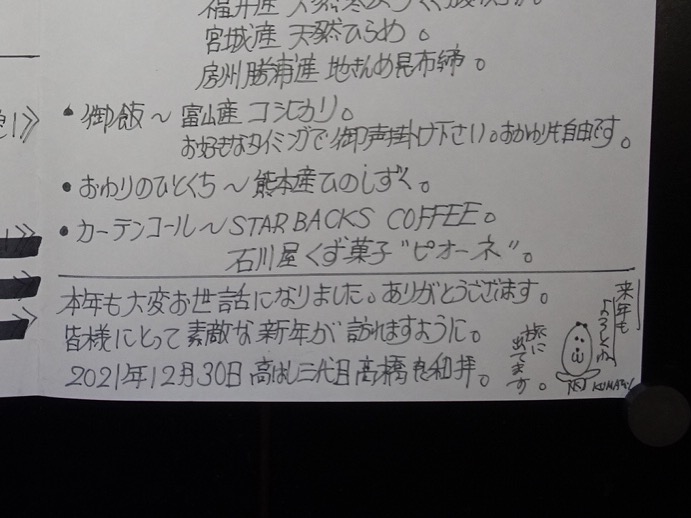 福井産 天然寒ぶりく
宮城産 天然ひらめ 。
房州勝浦産 地きんめ昆布締 。
・御飯～富山産 コシヒカリ。
お好きなタイミングで御声掛け下さい。おかわり自由です。
・おわりのひとくち～熊本産ひのしずく。
・カーテンコール～STARBACKS COFFEE。
石川屋くず菓子"ピオーネ"。
本年も大変お世話になりました。ありがとうございます。
皆様にとって素敵な新年が訪れますように。
2021年12月30日 高はし三代目 髙橋 和拝。
旅に
出てます。
来年も
よろしく